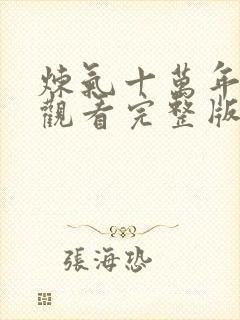 煉氣十萬年
觀看完整版
張海恐